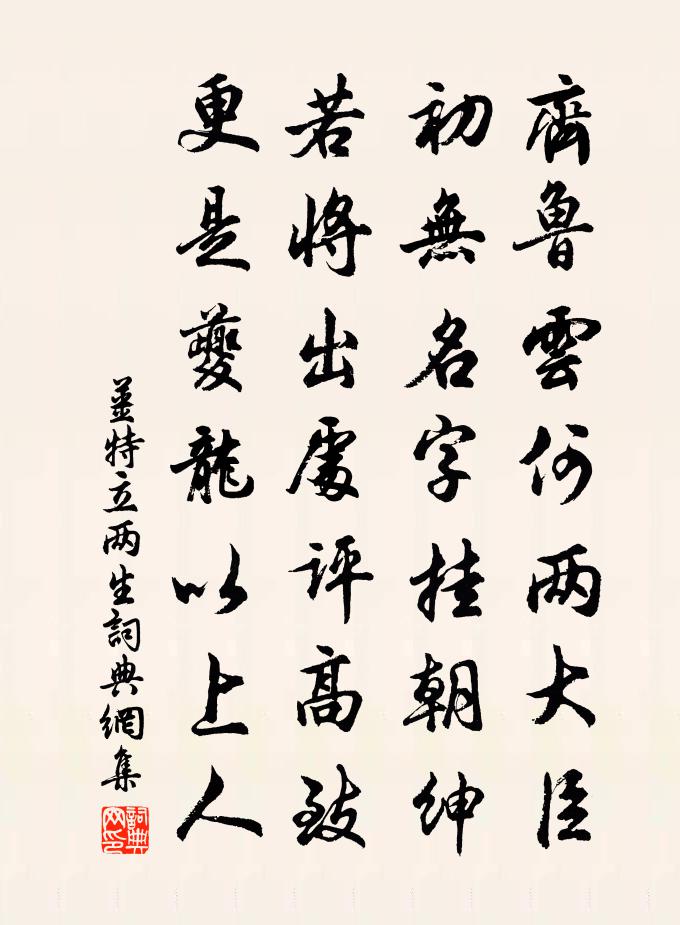 齊魯雲何两大臣
初無名字挂朝紳
若將出處評高致
更是夔龍以上人
薑特立两生詞典網集
詞典網印